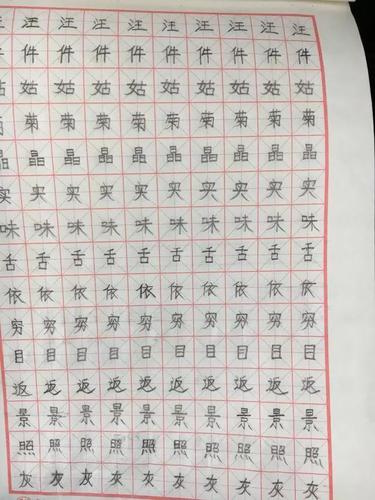 汪 汪 汪 汪 汪 汪 汪 汪
件 件 件 件 件 件 件 件
姑 姑 姑 姑 姑 姑 姑 姑 姑
菊 菊 菊 菊 菊 菊 菊 菊
晶 晶 晶 晶 晶 晶 晶 晶 晶
实 实 实 实 实 实 实 实 实
味 味 味 味 味 味 味 味 味
舌 舌 舌 舌 舌 舌 舌 舌 舌
依 依 依 依 依 依 依 依 依
穷 穷 穷 穷 穷 穷 穷 穷 穷
目 目 目 目 目 目 目 目 目
返 返 返 返 返 返 返 返 返
景 景 景 景 景 景 景 景 景
照 照 照 照 照 照 照 照 照
灰 灰 灰 灰 灰 灰 灰 灰 灰